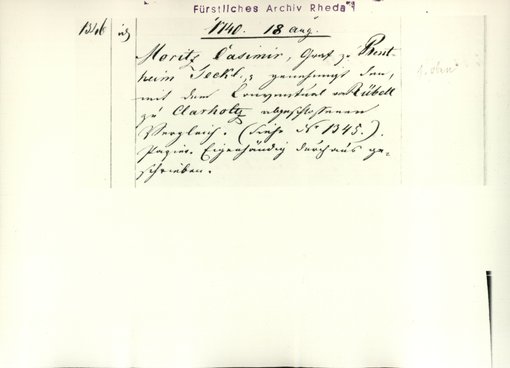 Fürstliches Archiv Rheda
1740. 18 Aug.
1346
Moritz Casimir, Graf zu Bent-
heim Teckl., genehmigt den,
mit dem Conventual von Rübell
zu Clarholtz abgeschlossenen
Vergleich. (Siehe No 1345.).
Papier. Eigenhändig durchaus ge-
schrieben.